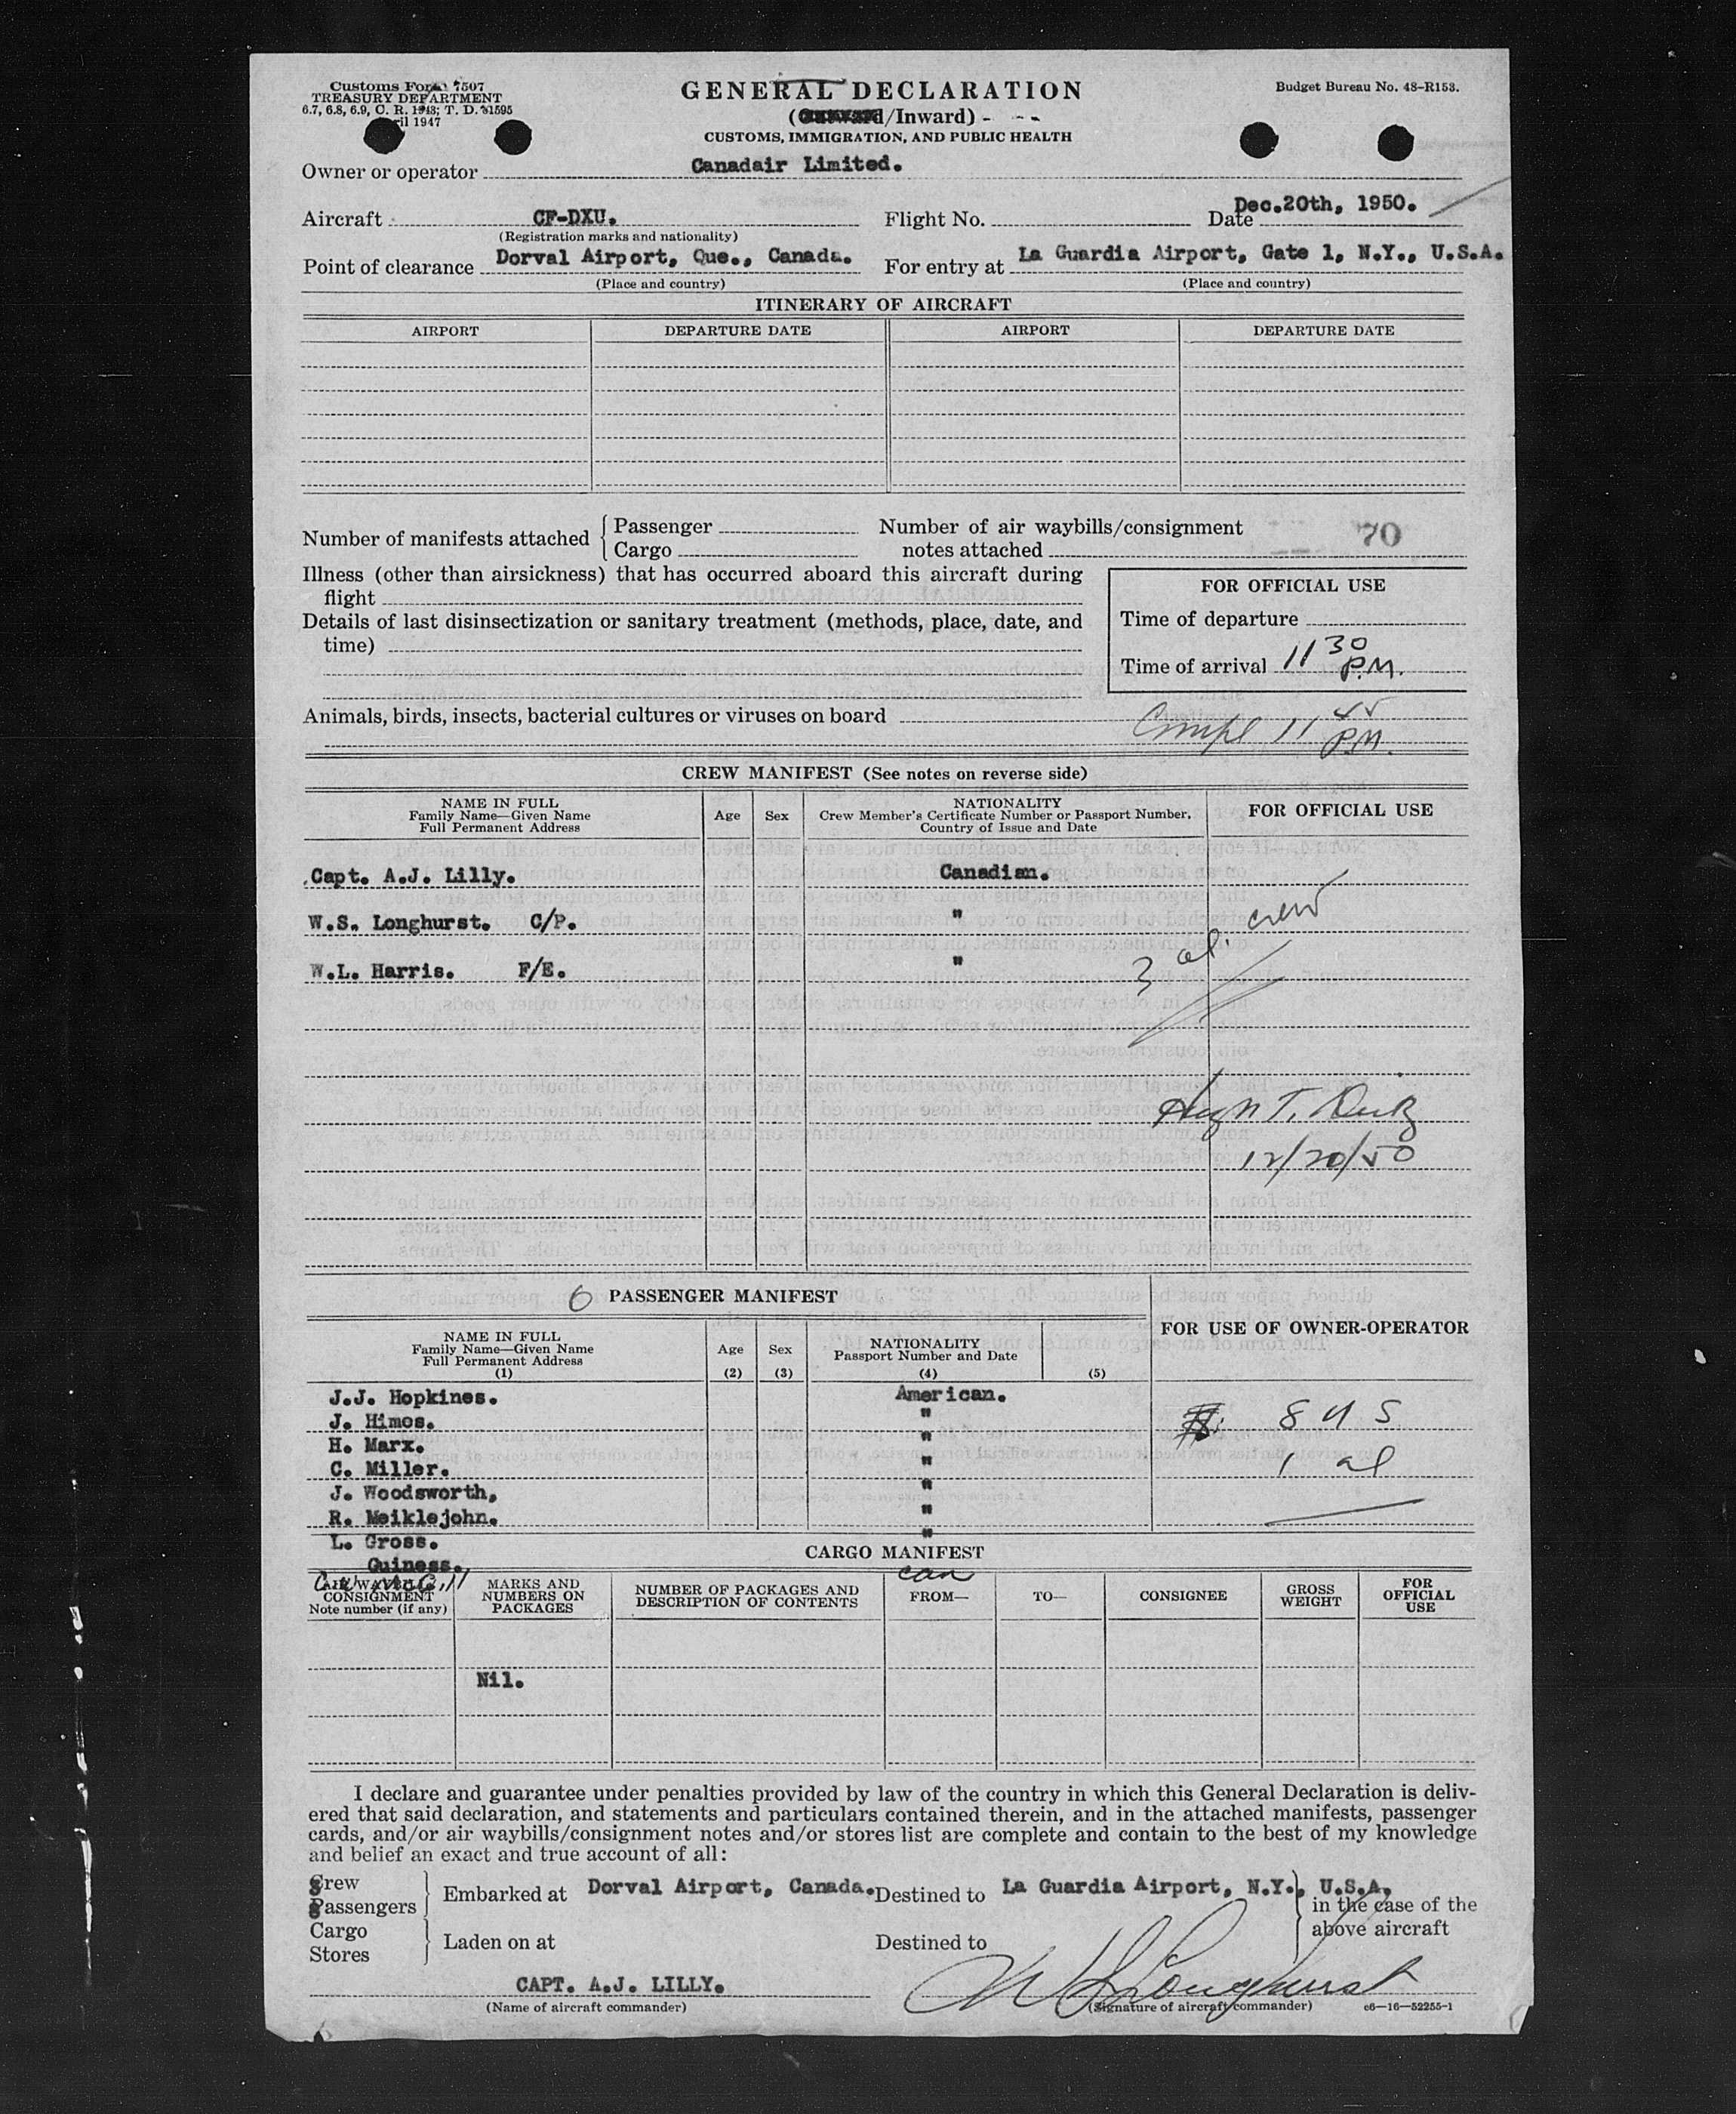 Customs Form 7507
TREASURY DEPARTMENT
6.7, 6.8, 6.9, C. R. 1943; T. D. 51595
April 1947
GENERAL DECLARATION
(/Inward)
CUSTOMS, IMMIGRATION, AND PUBLIC HEALTH
Budget Bureau No. 48-R153.
Owner or operator Canadair Limited.
Aircraft CF-DXU. Flight No. Date Dec.20th, 1950.
(Registration marks and nationality)
Point of clearance Dorval Airport, Que., Canada. For entry at La Guardia Airport, Gate 1, N.Y., U.S.A.
(Place and country) (Place and country)
ITINERARY OF AIRCRAFT
AIRPORT DEPARTURE DATE AIRPORT DEPARTURE DATE
Number of manifests attached { Passenger Number of air waybills/consignment 70
Cargo notes attached
Illness (other than airsickness) that has occurred aboard this aircraft during
flight
Details of last disinsectization or sanitary treatment (methods, place, date, and
time)
FOR OFFICIAL USE
Time of departure
Time of arrival 11 30 P.M.
Animals, birds, insects, bacterial cultures or viruses on board
Compl 11 45 P.M.
CREW MANIFEST (See notes on reverse side)
NAME IN FULL
Family Name—Given Name
Full Permanent Address
Age Sex
NATIONALITY
Crew Member's Certificate Number or Passport Number,
Country of Issue and Date
FOR OFFICIAL USE
Capt. A.J. Lilly. Canadian.
W.S. Longhurst. C/P. "
W.L. Harris. F/E. "
3 al. crew
Hugh T.
12/20/50
6 PASSENGER MANIFEST
FOR USE OF OWNER-OPERATOR
NAME IN FULL
Family Name—Given Name
Full Permanent Address
(1)
Age
(2)
Sex
(3)
NATIONALITY
Passport Number and Date
(4) (5)
J.J. Hopkines. American.
J. Himos. " 8 U S
H. Marx. "
C. Miller. " 1 al
J. Woodsworth, "
R. Meiklejohn. "
L. Gross. "
Guiness.
CARGO MANIFEST
McGill can
CONSIGNMENT
Note number (if any)
MARKS AND
NUMBERS ON
PACKAGES
NUMBER OF PACKAGES AND
DESCRIPTION OF CONTENTS
FROM— TO— CONSIGNEE
GROSS
WEIGHT
FOR
OFFICIAL
USE
Nil.
I declare and guarantee under penalties provided by law of the country in which this General Declaration is deliv-
ered that said declaration, and statements and particulars contained therein, and in the attached manifests, passenger
cards, and/or air waybills/consignment notes and/or stores list are complete and contain to the best of my knowledge
and belief an exact and true account of all:
Crew
Passengers
Embarked at Dorval Airport, Canada. Destined to La Guardia Airport, N.Y., U.S.A.
in the case of the
above aircraft
Cargo
Stores
Laden on at Destined to
CAPT. A.J. LILLY. W S Longhurst
(Name of aircraft commander) (Signature of aircraft commander) c6—16—52255-1